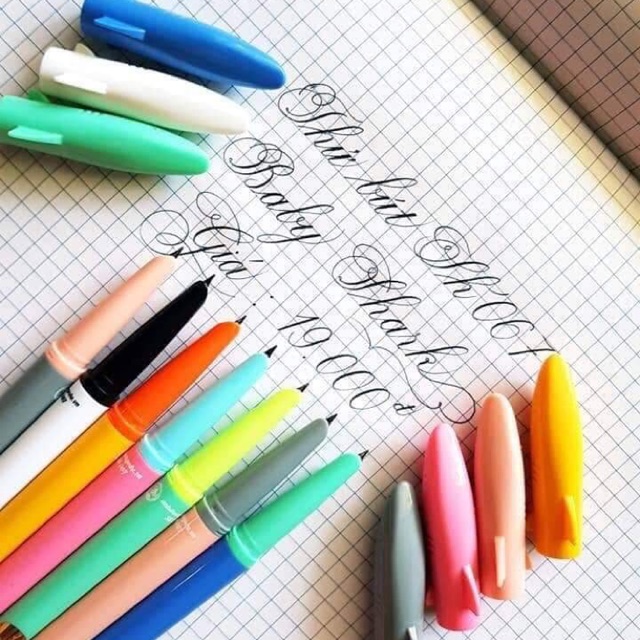 Thử bút Sh 061
Baby Shark
Giá : 19.000đ